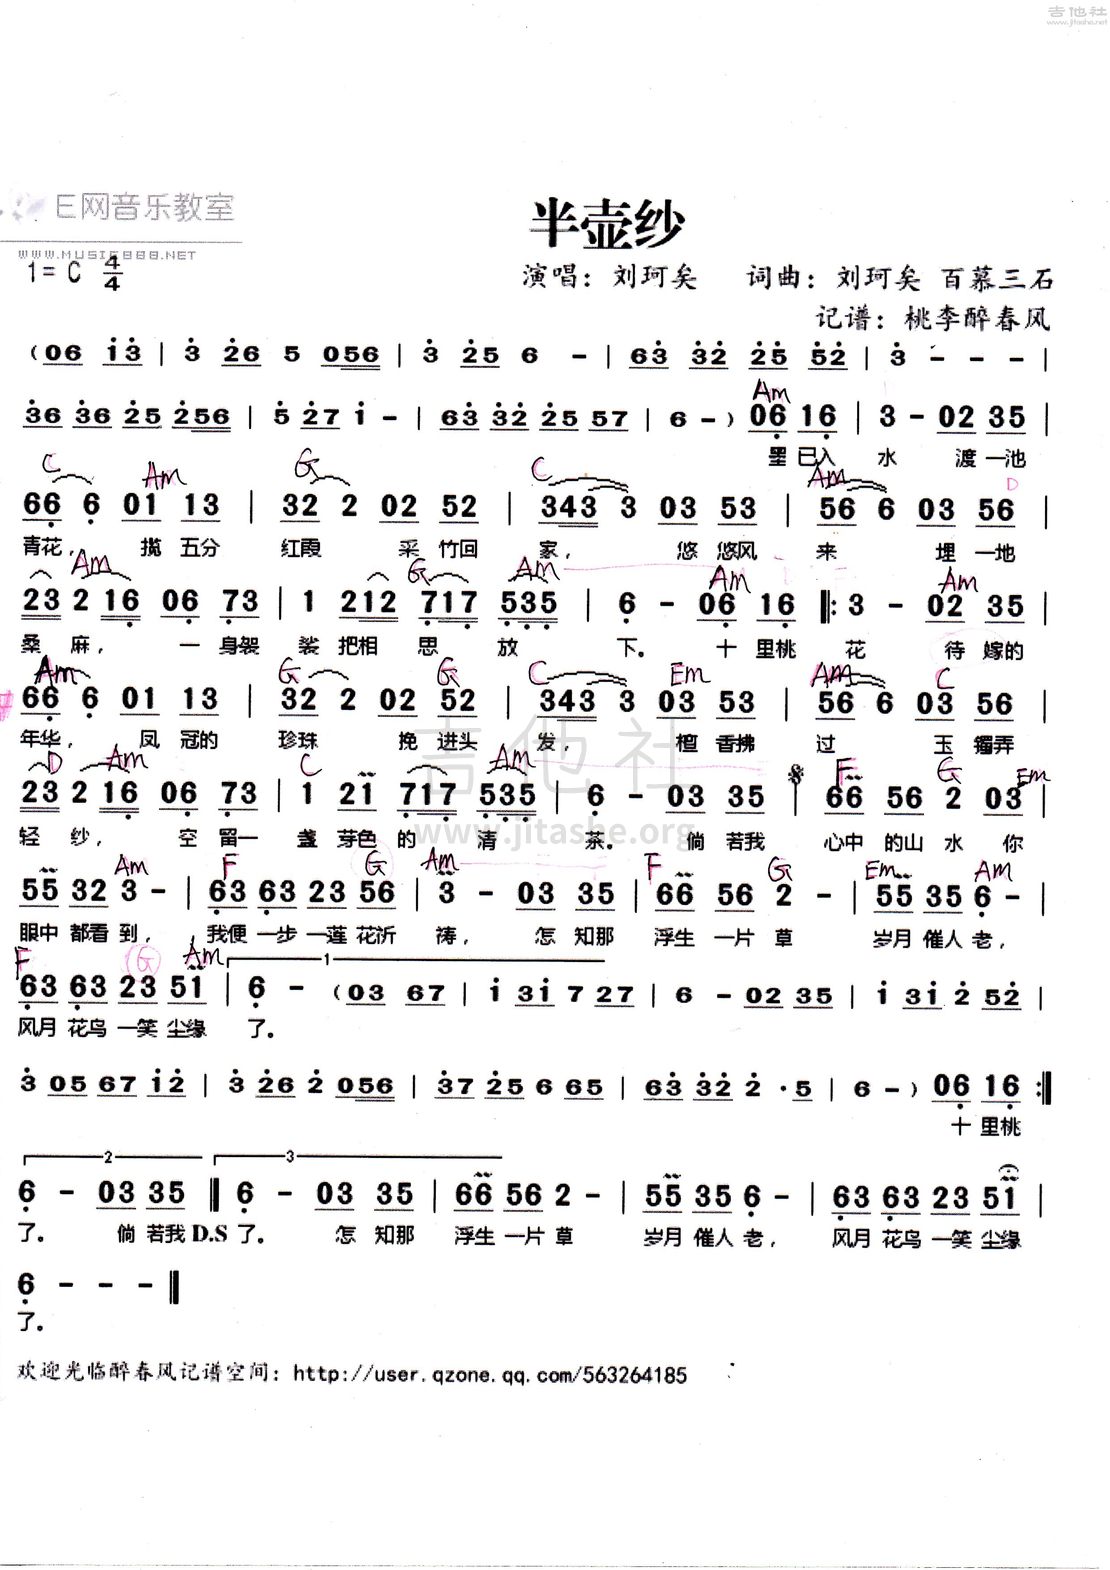 吉他社
www.jitashe.net
E网音乐教室
WWW.MUSIC888.NET
半壶纱
1=C 4/4
演唱：刘珂矣 词曲：刘珂矣 百慕三石
记谱：桃李醉春风
(06 13 | 3 26 5 056 | 3 25 6 - | 63 32 25 52 | 3 - - - |
Am
36 36 25 256 | 5 27 1 - | 63 32 25 57 | 6 - ) 06 16 | 3 - 02 35 |
墨已入 水 渡一池
C Am G C Am D
66 6 01 13 | 32 2 02 52 | 343 3 03 53 | 56 6 03 56 |
青花， 揽 五分 红霞 采 竹回 家， 悠 悠风 来 埋 一地
Am G Am Am Am
23 2 16 06 73 | 1 212 717 535 | 6 - 06 16 ‖: 3 - 02 35 |
桑 麻， 一 身袈 裟 把相 思 放 下。 十 里桃 花 待 嫁的
Am G G C Em Am C
66 6 01 13 | 32 2 02 52 | 343 3 03 53 | 56 6 03 56 |
年华， 凤 冠的 珍珠 挽 进头 发， 檀 香拂 过 玉 镯弄
D Am C Am F G Em
23 2 16 06 73 | 1 21 717 535 | 6 - 03 35 | 66 56 2 03 |
轻 纱， 空 留一 盏 芽色 的 清 茶。 倘 若我 心中 的山 水 你
吉他社
www.jitashe.org
Am F G Am F G Em Am
55 32 3 - | 63 63 23 56 | 3 - 03 35 | 66 56 2 - | 55 35 6 - |
眼中 都看 到， 我便 一步 一莲 花祈 祷， 怎 知那 浮生 一片 草 岁月 催人 老，
F G Am 1
63 63 23 51 | 6 - (03 67 | 1 31 7 27 | 6 - 02 35 | 1 31 2 52 |
风月 花鸟 一笑 尘缘 了。
3 05 67 12 | 3 26 2 056 | 37 25 6 65 | 63 32 2 ·5 | 6 - ) 06 16 :‖
十 里桃
2 3
6 - 03 35 ‖ 6 - 03 35 | 66 56 2 - | 55 35 6 - | 63 63 23 51 |
了。 倘 若我 D.S 了。 怎 知那 浮生 一片 草 岁月 催人 老， 风月 花鸟 一笑 尘缘
6 - - - ‖
了。
欢迎光临醉春风记谱空间：http://user.qzone.qq.com/563264185